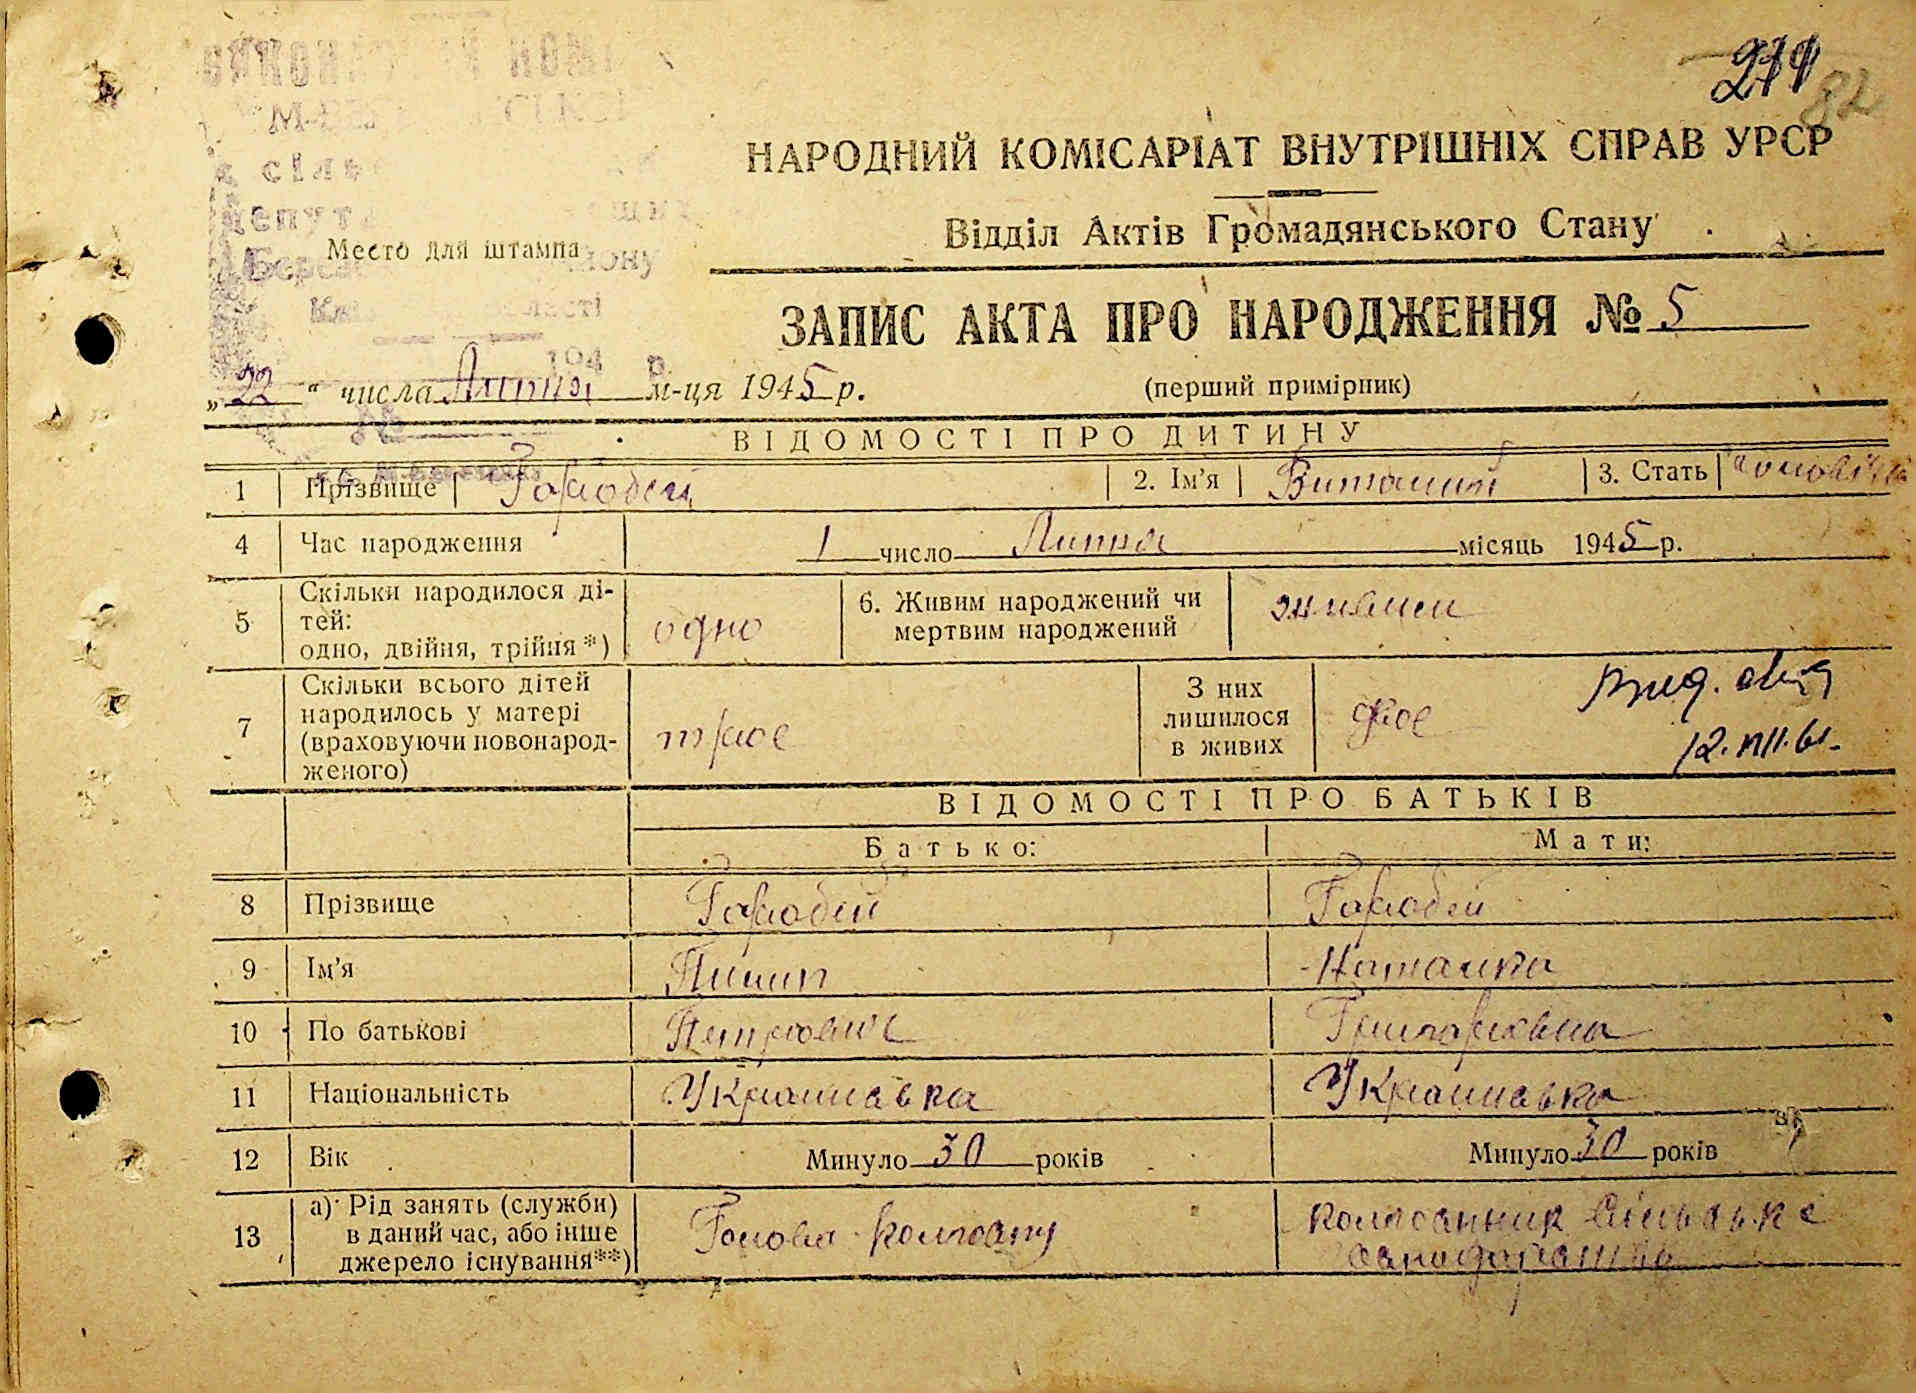 82
НАРОДНИЙ КОМІСАРІАТ ВНУТРІШНІХ СПРАВ УРСР
Відділ Актів Громадянського Стану
Место для штампа
ЗАПИС АКТА ПРО НАРОДЖЕННЯ № 5
(перший примірник)
„22“ числа Липня м-ця 1945 р.
ВІДОМОСТІ ПРО ДИТИНУ
1 Прізвище Горобей 2. Ім'я Виталий 3. Стать
4 Час народження 1 число Липня місяць 1945 р.
5 Скільки народилося ді-
тей:
одно, двійня, трійня *) одно 6. Живим народжений чи
мертвим народжений живим
7 Скільки всього дітей
народилось у матері
(враховуючи новонарод-
женого) троє З них
лишилося
в живих двоє
12.VII.61.
ВІДОМОСТІ ПРО БАТЬКІВ
Батько: Мати:
8 Прізвище Горобей Горобей
9 Ім'я Пилип Наталка
10 По батькові Петрович Григоровна
11 Національність Українська Українська
12 Вік Минуло 30 років Минуло 30 років
13 а) Рід занять (служби)
в даний час, або інше
джерело існування**) Голова колгоспу колгоспник сільське